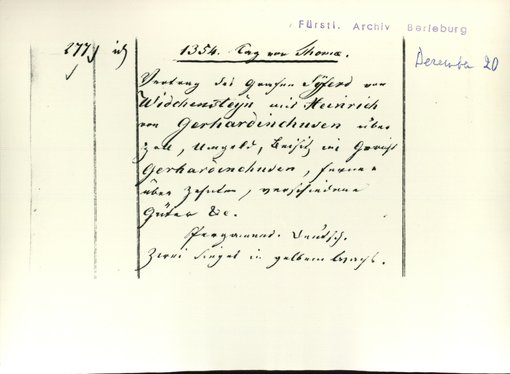 Fürstl. Archiv Berleburg
277
1354. Tag vor Thomæ.
Dezember 20
Vertrag des Grafen Syferd von
Widchensteyn mit Heinrich
von Gerhardinchusen über
Zoll, Umgeld, Beisitz im Gericht
Gerhardinchusen, ferner
über Zehnten, verschiedene
Güter &c.
Pergament. Deutsch.
Zwei Siegel in gelbem Wachs.